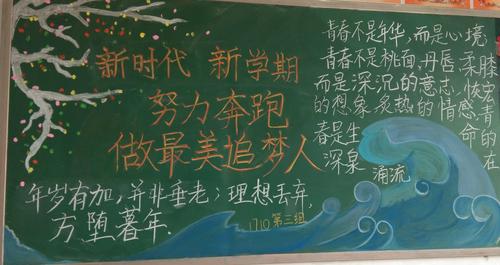 新时代 新学期
努力奔跑
做最美追梦人
青春不是年华,而是心境
青春不是桃面、丹唇、柔膝
而是深沉的意志,恢宏
的想象、炙热的情感,青
春是生命的
深泉在
涌流
年岁有加,并非垂老;理想丢弃,
方堕暮年.
1710第三组